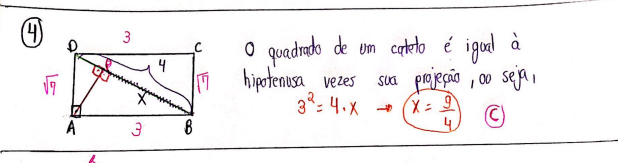 4
3
D
C
P
4
√7
√7
X
A
3
B
O quadrado de um cateto é igual à
hipotenusa vezes sua projeção, ou seja,
3² = 4·X → X = 9/4 C